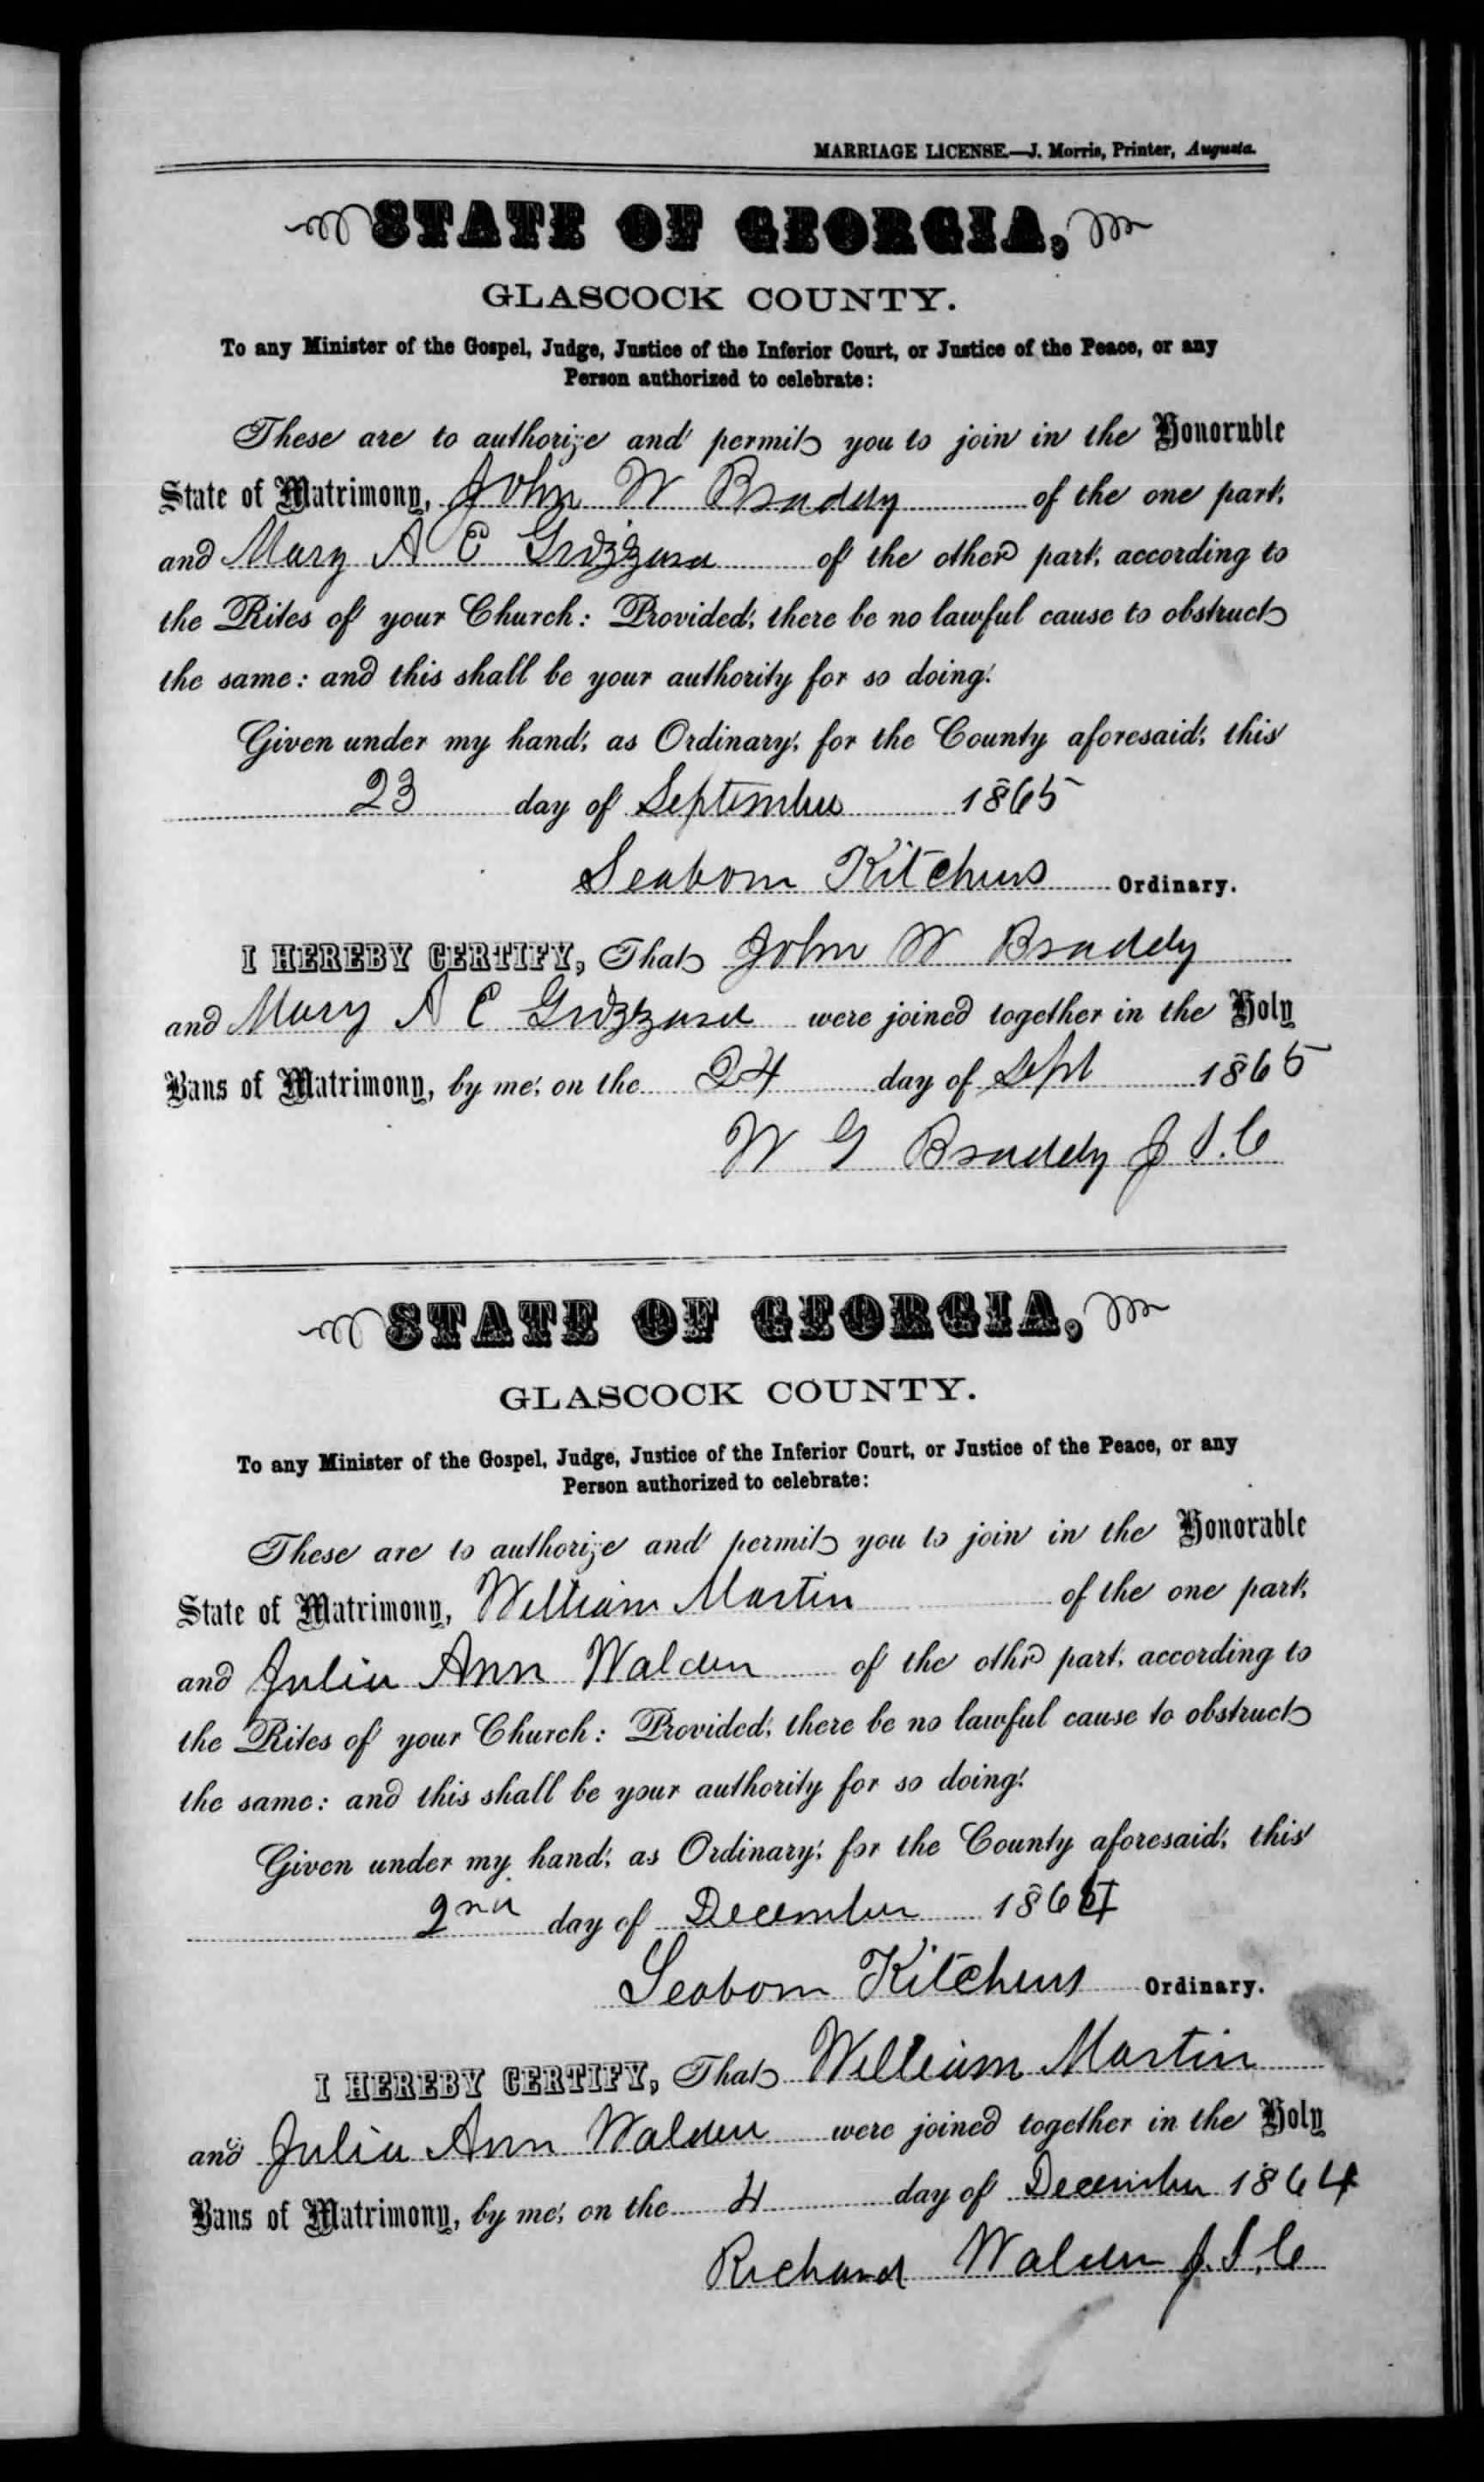 MARRIAGE LICENSE.—J. Morris, Printer, Augusta.
STATE OF GEORGIA,
GLASCOCK COUNTY.
To any Minister of the Gospel, Judge, Justice of the Inferior Court, or Justice of the Peace, or any
Person authorized to celebrate:
These are to authorize and permit you to join in the Honorable
State of Matrimony, John W Braddy of the one part,
and Mary A E Grizzard of the other part, according to
the Rites of your Church: Provided, there be no lawful cause to obstruct
the same: and this shall be your authority for so doing.
Given under my hand, as Ordinary, for the County aforesaid, this
23 day of September 1865
Seaborn Kitchens Ordinary.
I HEREBY CERTIFY, That John W Braddy
and Mary A E Grizzard were joined together in the Holy
Bans of Matrimony, by me, on the 24 day of Sept 1865
W G Braddy J I.C
STATE OF GEORGIA,
GLASCOCK COUNTY.
To any Minister of the Gospel, Judge, Justice of the Inferior Court, or Justice of the Peace, or any
Person authorized to celebrate:
These are to authorize and permit you to join in the Honorable
State of Matrimony, William Martin of the one part,
and Julia Ann Walden of the other part, according to
the Rites of your Church: Provided, there be no lawful cause to obstruct
the same: and this shall be your authority for so doing.
Given under my hand, as Ordinary, for the County aforesaid, this
2nd day of December 1864
Seaborn Kitchens Ordinary.
I HEREBY CERTIFY, That William Martin
and Julia Ann Walden were joined together in the Holy
Bans of Matrimony, by me, on the 4 day of December 1864
Richard Walden J.I.C